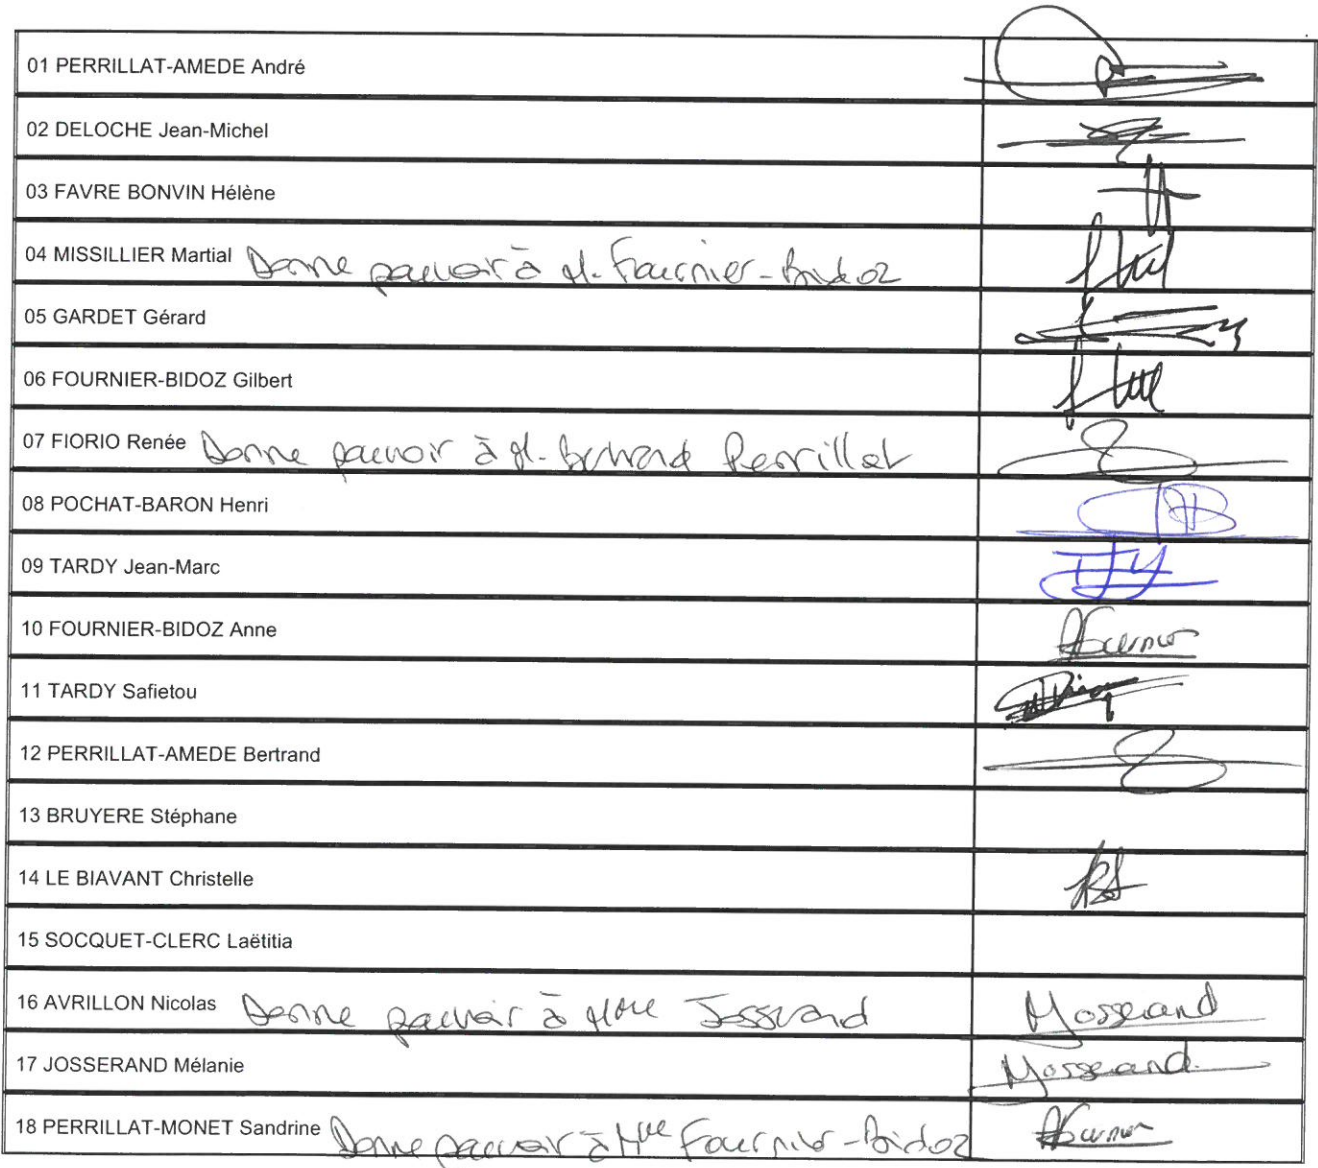 01 PERRILLAT-AMEDE André
02 DELOCHE Jean-Michel
03 FAVRE BONVIN Hélène
04 MISSILLIER Martial Donne pouvoir à M. Fournier-Bidoz
05 GARDET Gérard
06 FOURNIER-BIDOZ Gilbert
07 FIORIO Renée Donne pouvoir à M. Bertrand Perrillat
08 POCHAT-BARON Henri
09 TARDY Jean-Marc
10 FOURNIER-BIDOZ Anne AFournier
11 TARDY Safietou
12 PERRILLAT-AMEDE Bertrand
13 BRUYERE Stéphane
14 LE BIAVANT Christelle
15 SOCQUET-CLERC Laëtitia
16 AVRILLON Nicolas Donne pouvoir à Mme Josserand MJosserand
17 JOSSERAND Mélanie MJosserand
18 PERRILLAT-MONET Sandrine Donne pouvoir à Mme Fournier-Bidoz AFournier